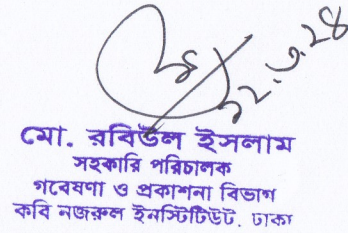 ১২.৩.২৪
মো. রবিউল ইসলাম
সহকারি পরিচালক
গবেষণা ও প্রকাশনা বিভাগ
কবি নজরুল ইনস্টিটিউট, ঢাকা